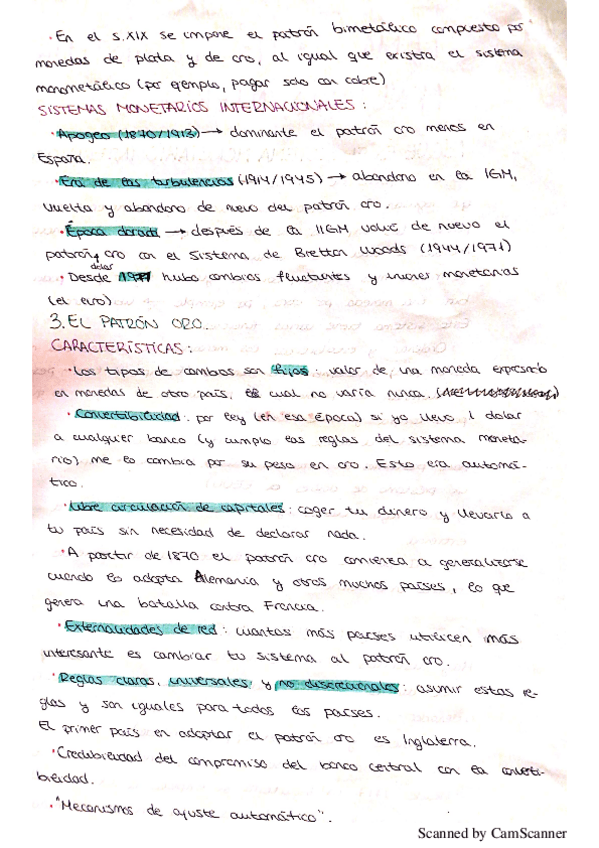 · En el s.XIX se impone el patrón bimetálico compuesto por
monedas de plata y de oro, al igual que existía el sistema
monometálico (por ejemplo, pagar solo con cobre)
SISTEMAS MONETARIOS INTERNACIONALES:
· Apogeo (1870/1913) → dominante el patrón oro menos en
España.
· Era de las turbulencias (1914/1945) → abandono en la IGM,
vuelta y abandono de nuevo del patrón oro.
· Época dorada → después de la IIGM volvió de nuevo el
patrón oro con el Sistema de Bretton Woods (1944/1971)
dólar
· Desde 1971 hubo cambios fluctuantes y uniones monetarias
(el euro)
3. EL PATRÓN ORO.
CARACTERÍSTICAS:
· Los tipos de cambios son fijos: valor de una moneda expresado
en monedas de otro país, el cual no varía nunca.
· Convertibilidad: por ley (en esa época) si yo llevo 1 dolar
a cualquier banco (y cumplo las reglas del sistema moneta-
rio) me lo cambia por su peso en oro. Esto era automá-
tico.
· Libre circulación de capitales: coger tu dinero y llevarlo a
tu país sin necesidad de declarar nada.
· A partir de 1870 el patrón oro comienza a generalizarse
cuando lo adopta Alemania y otros muchos países, lo que
genera una batalla contra Francia.
· Externalidades de red: cuantos más países utilicen más
interesante es cambiar tu sistema al patrón oro.
· Reglas claras, universales y no discrecionales: asumir estas re-
glas y son iguales para todos los países.
El primer país en adoptar el patrón oro es Inglaterra.
· Credibilidad del compromiso del banco central con la converti-
bilidad.
· "Mecanismos de ajuste automático".
Scanned by CamScanner